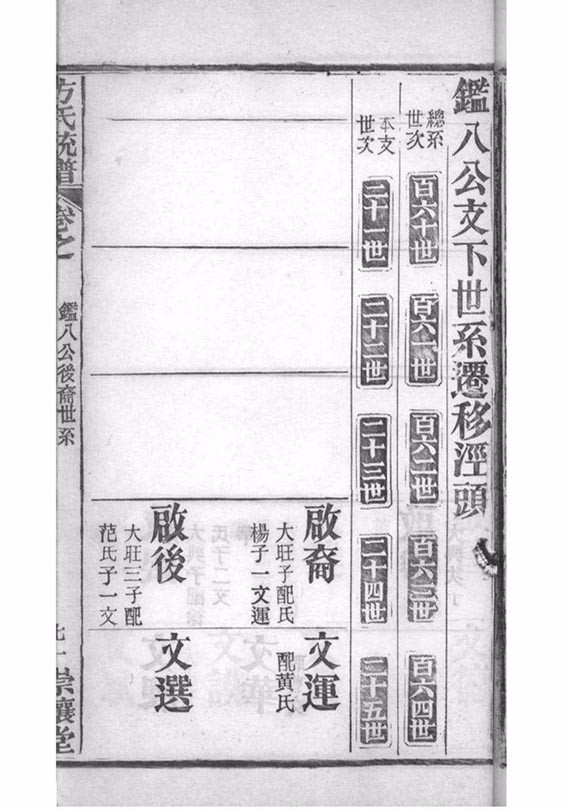 鑑八公支下世系遷移涇頭
總系世次
百六十世
百六一世
百六二世
百六三世
百六四世
本支世次
二十一世
二十二世
二十三世
二十四世
二十五世
啟裔
大旺子配氏
楊子一文運
文運
配黃氏
啟後
大旺三子配
范氏子一文
文選
方氏統譜
卷之
鑑八公後裔世系
崇讓堂